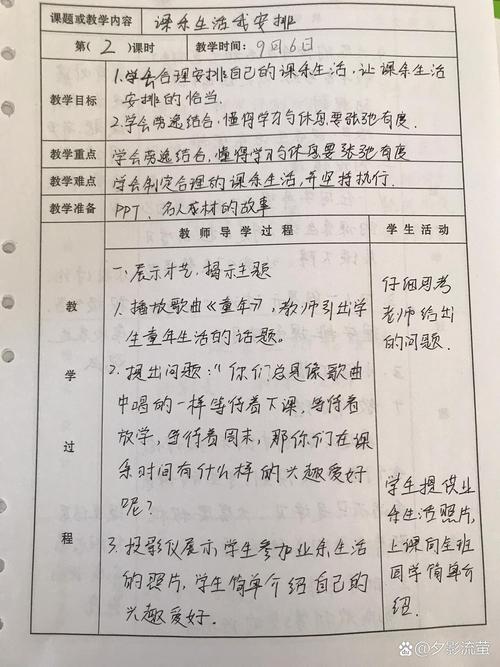 课题或教学内容 课余生活我安排
第(2)课时 教学时间:9月6日
教学目标
1.学会合理安排自己的课余生活,让课余生活
安排的恰当.
2.学会劳逸结合,懂得学习与休息要张弛有度.
教学重点 学会劳逸结合,懂得学习与休息要张弛有度
教学难点 学会制定合理的课余生活,并坚持执行.
教学准备 PPT、名人成材的故事
教师导学过程 学生活动
教学过程
一、展示才艺,揭示主题
1.播放歌曲《童年》,教师引出学
生童年生活的话题。
2.提出问题:"你们总是像歌曲
中唱的一样等待着下课,等待着
放学,等待着周末,那你们在课
余时间有什么样的兴趣爱好
呢?
3.投影仪展示学生参加业余生活
的照片,学生简单介绍自己的
兴趣爱好.
仔细思考
老师给出
的问题.
学生提供业
余生活照片,
上课向全班
同学简单介
绍.
Baidu百科@夕影流萤